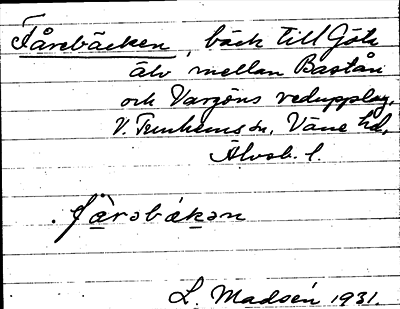 Fårebäcken, bäck till Göta
älv mellan Bastån
och Vargöns vedupplag,
V. Tunhems sn, Väne hd,
Älvsb. l.
fä̀rəbák̠ən
L. Madsén 1931.